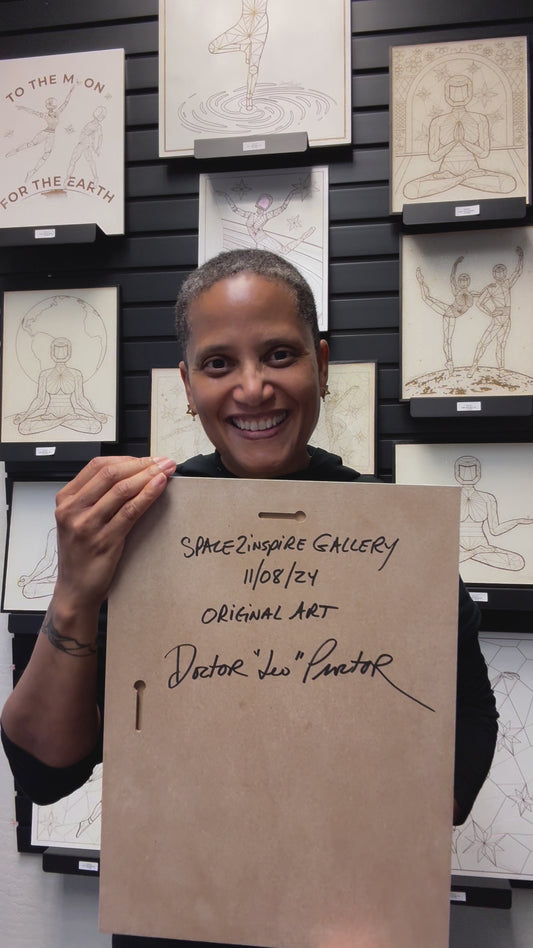 TO THE MOON
FOR THE EARTH
SPACE2INSPIRE GALLERY
11/08/24
ORIGINAL ART
DOCTOR "LEO" PROCTOR